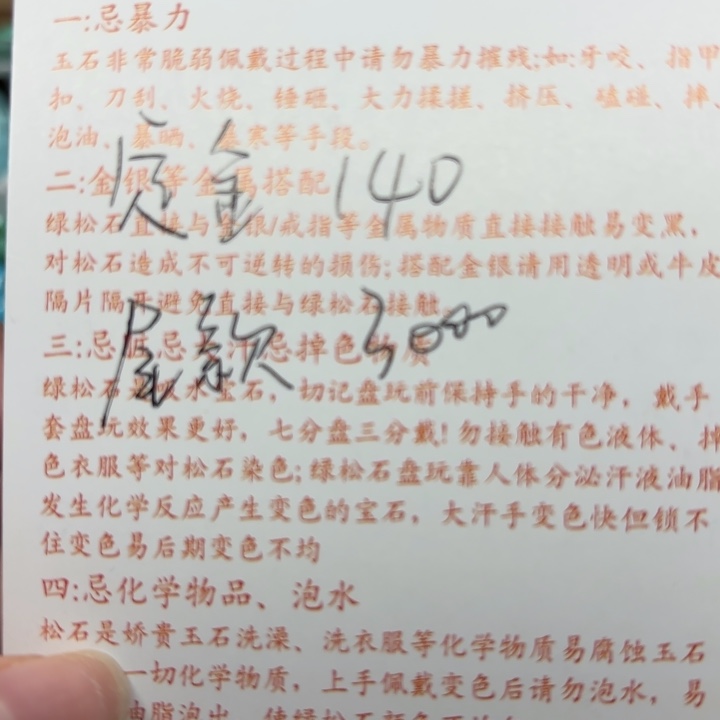 一:忌暴力
玉石非常脆弱佩戴过程中请勿暴力摧残;如:牙咬、指甲
扣、刀刮、火烧、锤砸、大力揉搓、挤压、磕碰、摔、
泡油、暴晒、暴寒等手段。
定金 140
二:金银等金属搭配
绿松石直接与金银/戒指等金属物质直接接触易变黑,
对松石造成不可逆转的损伤;搭配金银请用透明或牛皮
隔片隔开避免直接与绿松石接触。
尾款 3000
三:忌 忌大汗忌掉色物质
绿松石是吸水宝石,切记盘玩前保持手的干净,戴手
套盘玩效果更好,七分盘三分戴!勿接触有色液体、掉
色衣服等对松石染色;绿松石盘玩靠人体分泌汗液油脂
发生化学反应产生变色的宝石,大汗手变色快但锁不
住变色易后期变色不均
四:忌化学物品、泡水
松石是娇贵玉石洗澡、洗衣服等化学物质易腐蚀玉石
一切化学物质,上手佩戴变色后请勿泡水,易
油脂泡出,使绿松石颜色